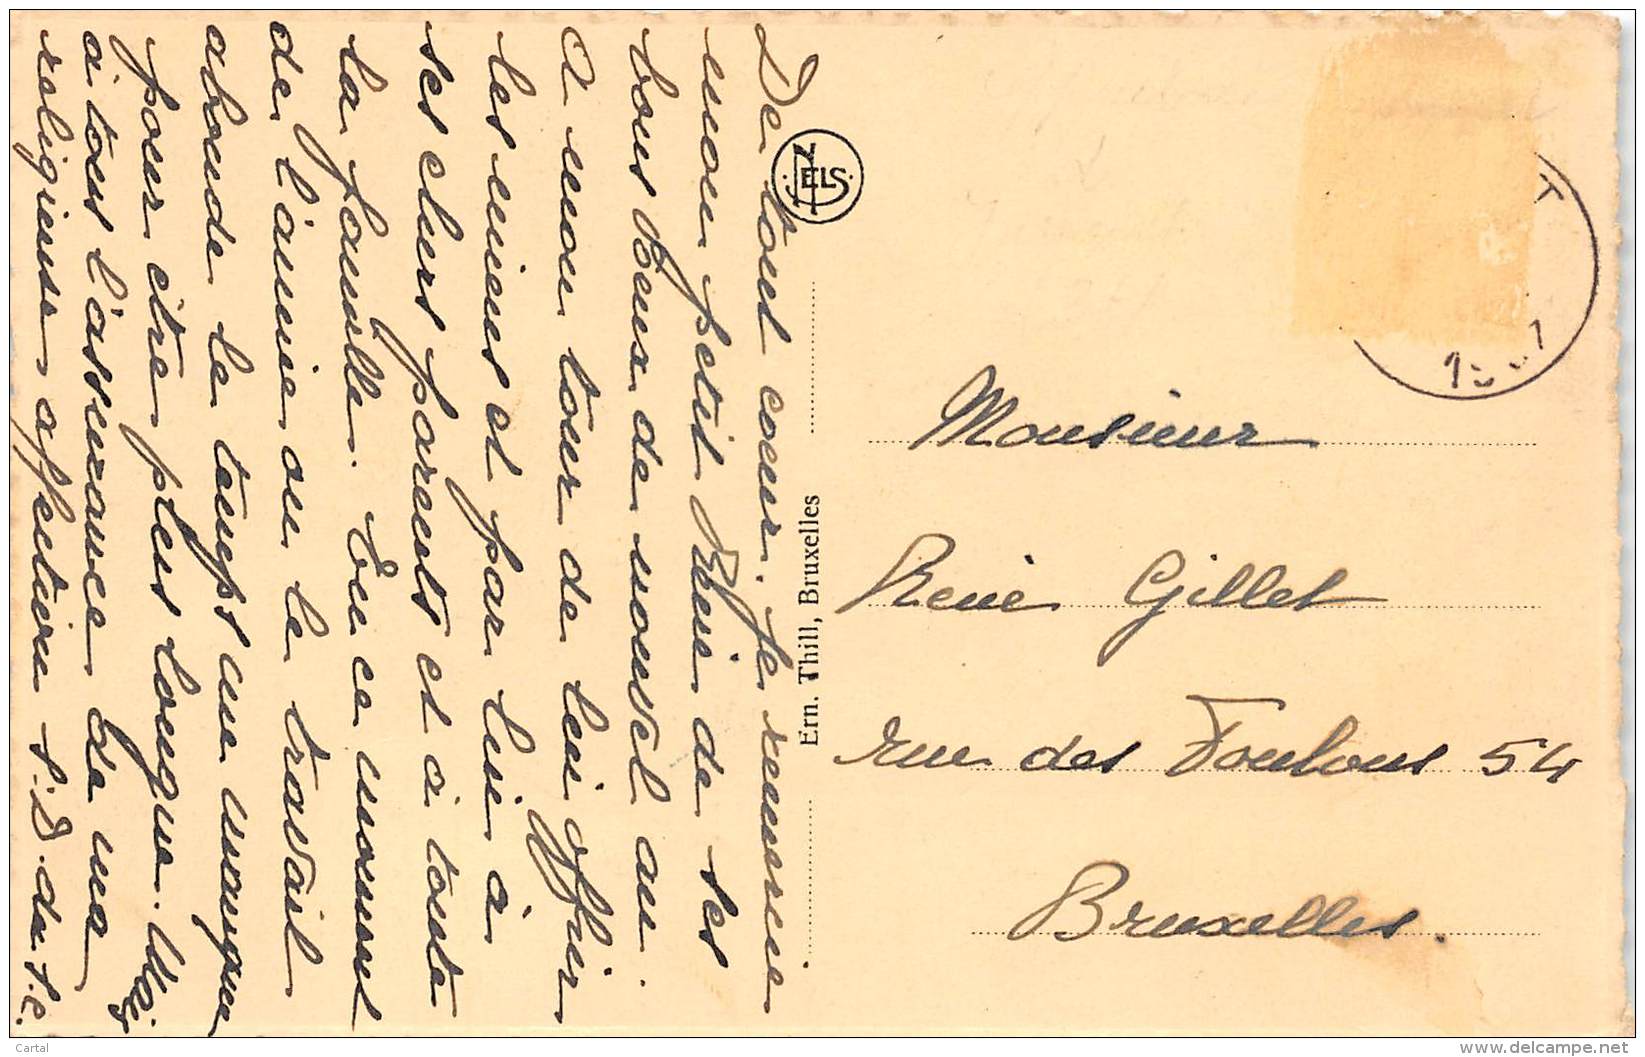 De tout coeur je remercie
mon petit René de ses
bons voeux de nouvel an.
A mon tour de lui offrir
les miens et par lui à
ses chers parents et à toute
la famille. En ce moment
de l'année où le travail
abonde le temps me manque
pour être plus longue.
à tous l'assurance de ma
religieuse affection
NELS
Ern. Thill, Bruxelles
Monsieur
René Gillet
rue des Foulons 54
Bruxelles.
T
Cartal
delcampe.net